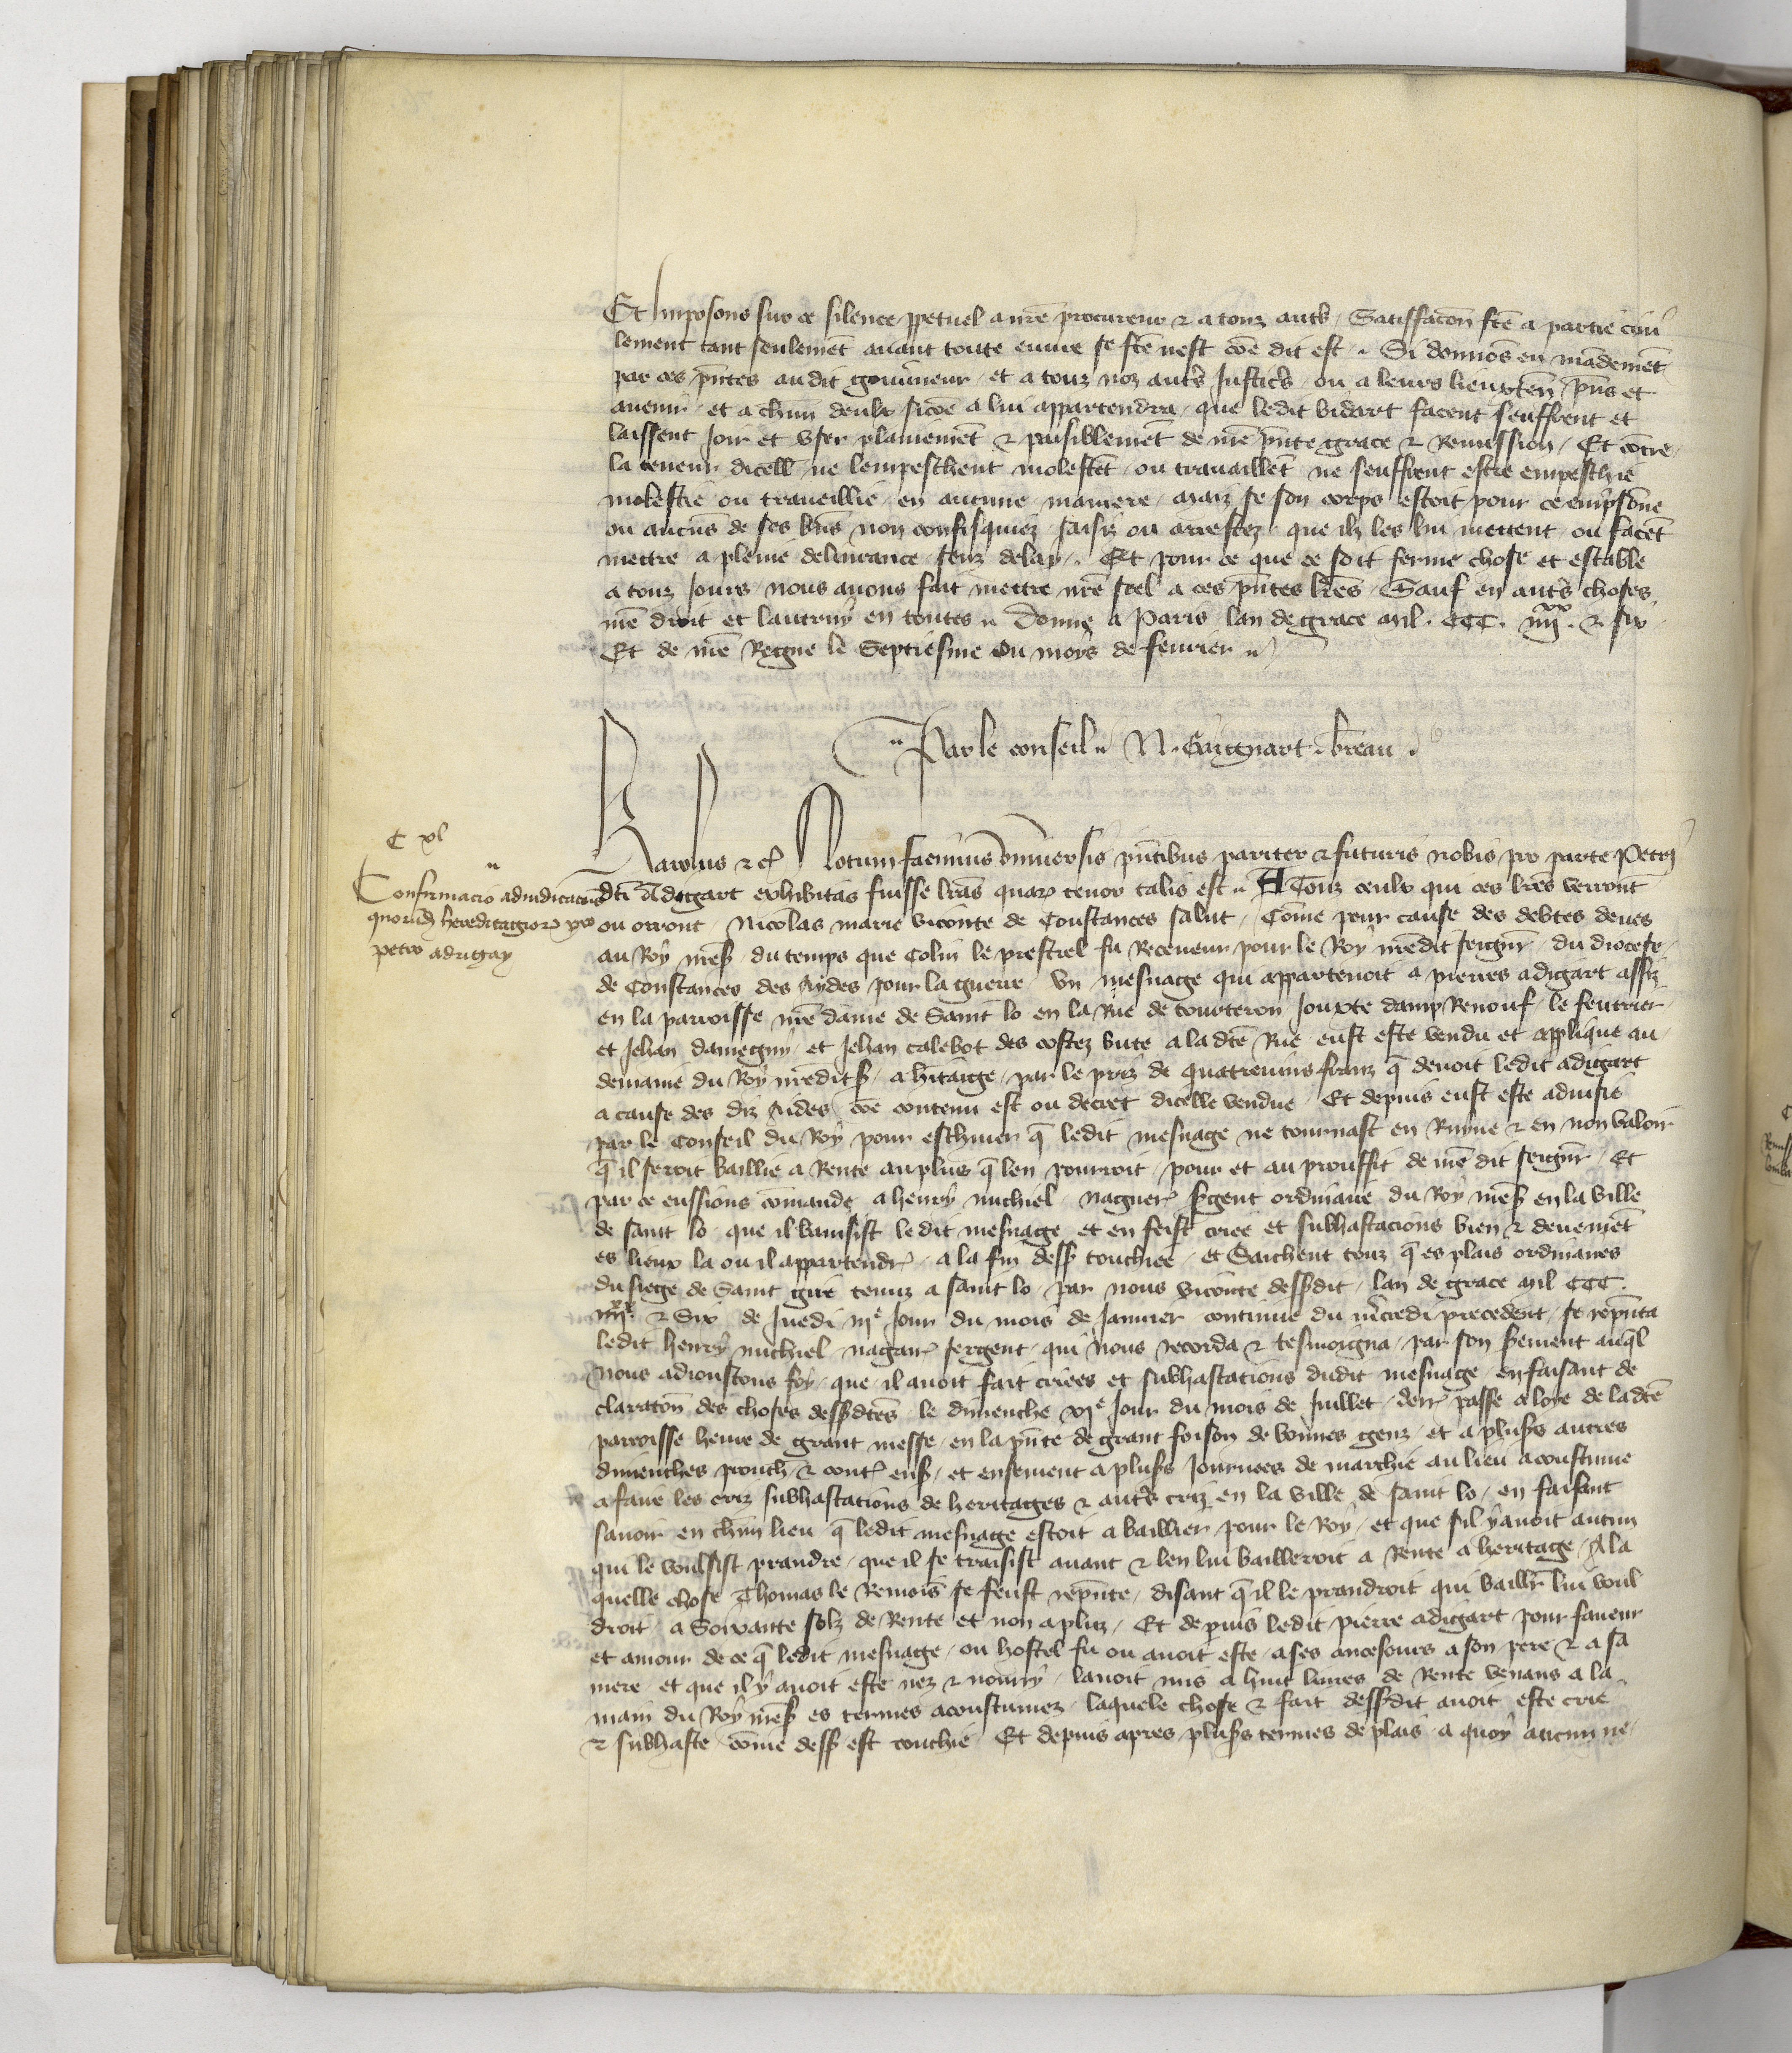 Et Imposons sur ce silence ppetuel a nrē procureur & a touz autrs Satiffacōn fte a partie ciui
lement tant seulemēt auant toute euure se fte nest cōe dit est Si donnōs en mādemēt
par ces pñtes au dit gouũneur et a touz noz autrs Justiciers ou a leurs lieuxten pñs et
auenir et a chũn deulx sicōe a lui appartendra que ledit bidart facent seuffrent et
laissent Joir et vser plainemēt & paisiblemēt de nrē pñte grace & Remission Et cōtre
la teneur dicelle ne lempeschent molestēt ou trauaillēt ne seuffrent estre empeschie
molestie ou traueillie en aucune maniere maiz se son corps estoit pour ce emprisōne
ou aucũs de ses biẽs non confisquiez saisiz ou arrestez que ilz les lui mettent ou facēt
mettre a pleine deliurance senz delay Et pour ce que ce soit ferme chose et estable
a touz Jours nous auons fait mettre nrē scel a ces pñtes lrēs Sauf en autrs choses
nrē droit et lautruy en toutes Donne a Paris lan de grace mil CCC iiijxx & six
Et de nrē Regne le Septiesme ou moys de feurier
Par le conseil N Gaignart breau
C xl
Confirmacio adiudicacionis
quorũd hereditagiorum pro
petro adrigay
Karolus &c Notum facimus Vniuersis pñtibus pariter & futuris nobis pro parte Petri
dci Adigart exhibitas fuisse lrās quarum tenor talis est A Touz ceulx qui ces lrēs verront
ou orront Nicolas marie viconte de Coustances salut Cōme pour cause des debtes deues
au Roy nrēs du temps que Colin le prestrel fu Receueur pour le Roy nrēdit seignr du diocese
de Constances des Aydes pour la guerre vn mesnage qui appartenoit a pierres adigart assiz
en la parroisse nrē dame de Saint lo en la Rue de tourteron Jouxte damp Renouf le feutrier
et Jehan dameguy et Jehan calebot des costez bute a la dtē Rue eust este vendu et applique au
demaine du Roy nrēdits a hitaige par le priz de quatreuins franz q̄ deuoit ledit adigart
a cause des diz Aides cōe contenu est ou decret dicelle vendue Et depuis eust este aduisie
par le Conseil du Roy pour eschiuer q̄ ledit mesnage ne tournast en Ruyne & en non valoir
q̄ il seroit baillie a Rente au plus q̄ len pourroit pour et au prouffit de nrē dit seignr Et
par ce eussions cōmande a henry michiel naguer sgent ordinaire du Roy nrēs en la ville
de saint lo que il banisist ledit mesnage et en feist criee et subhastacions bien & deuemēt
es lieux la ou il appartendr a la fin dess touchiee et Saichent touz q̄ es plais ordinaires
du siege de Saint gire tenuz a saint lo par nous viconte dessdit lan de grace mil CCC
iiijxx & Six de Juedi iije Jour du mois de Januier continue du m̃credi precedēt se repñta
ledit henry michiel naguer sergent qui nous recorda & tesmoigna par son sement auq̄l
nous adioustons foy que il auoit fait criees et subhastations dudit mesnage en faisant de
claratōn des choses dessdtēs le dimenche xje Jour du mois de Juillet derr passe a loye de ladtē
parroisse heure de grant messe en la pñte de grant foison de bonnes genz et a plurs autres
dimenches prouch & cont ens et ensement a plurs Journees de marchie au lieu acoustume
a faire les criz subhastations de heritages & autrs criz en la ville de saint lo en faisant
sauoir en chũn lieu q̄ ledit mesnage estoit a baillier pour le Roy et que sil y auoit aucun
qui le voulsist prandre que il se traisist auant & len lui bailleroit a Rente a heritage A la
quelle chose Thomas le Remois se feust repñte disant q̄ il le prandroit qui baillr lui voul
droit a Soixante solz de Rente et non a pluz Et depuis ledit pierre adigart pour faueur
et amour de ce q̄ ledit mesnage ou hostel fu ou auoit este a ses ancesours a son pere & a sa
mere et que il y auoit este nez & nourry lauoit mis a huit liures de Rente venans a la
main du Roy nrēs es termes acoustumez laquele chose & fait dessdit auoit este crie
& subhaste cōme dess est touchie Et depuis apres plurs termes de plais a quoy aucun ne